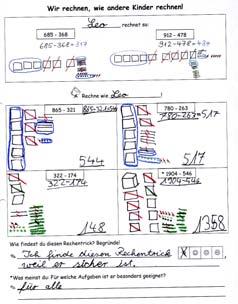 Wir rechnen, wie andere Kinder rechnen!
Leo rechnet so:
685 - 368
912 - 478
685-368=317
912-478=434
Rechne wie Leo
865 - 321
780 - 263
780-263=517
544
517
322 - 174
* 1904 - 546
322-174
1904-546
148
1358
Wie findest du diesen Rechentrick? Begründe!
Ich finde diesen Rechentrick
weil er sicher ist.
*Was meinst du: Für welche Aufgaben ist er besonders geeignet?
für alle